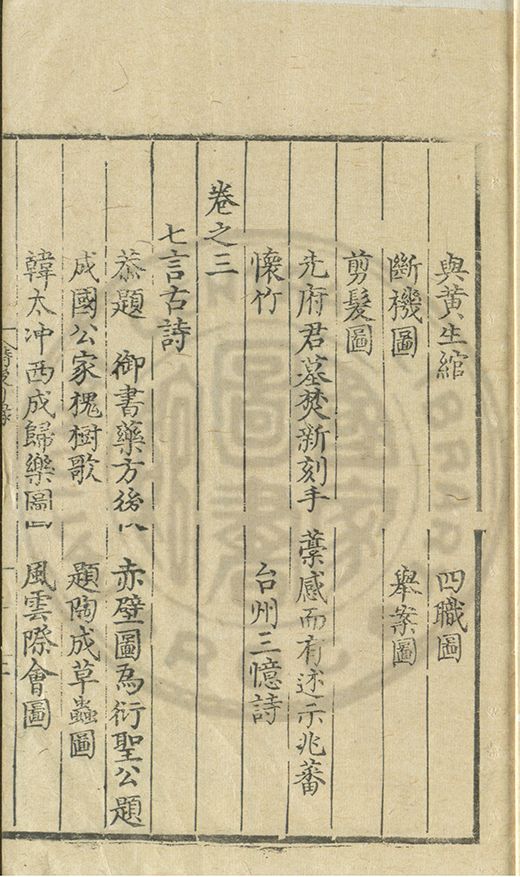 與黃生綰 四職圖
斷機圖 舉案圖
剪髮圖
先府君墓焚新刻手藁感而有述示兆蕃
懷竹 台州三憶詩
卷之三
七言古詩
恭題 御書藥方後 赤壁圖為衍聖公題
成國公家槐樹歌 題陶成草蟲圖
韓太冲西成歸樂圖 風雲際會圖